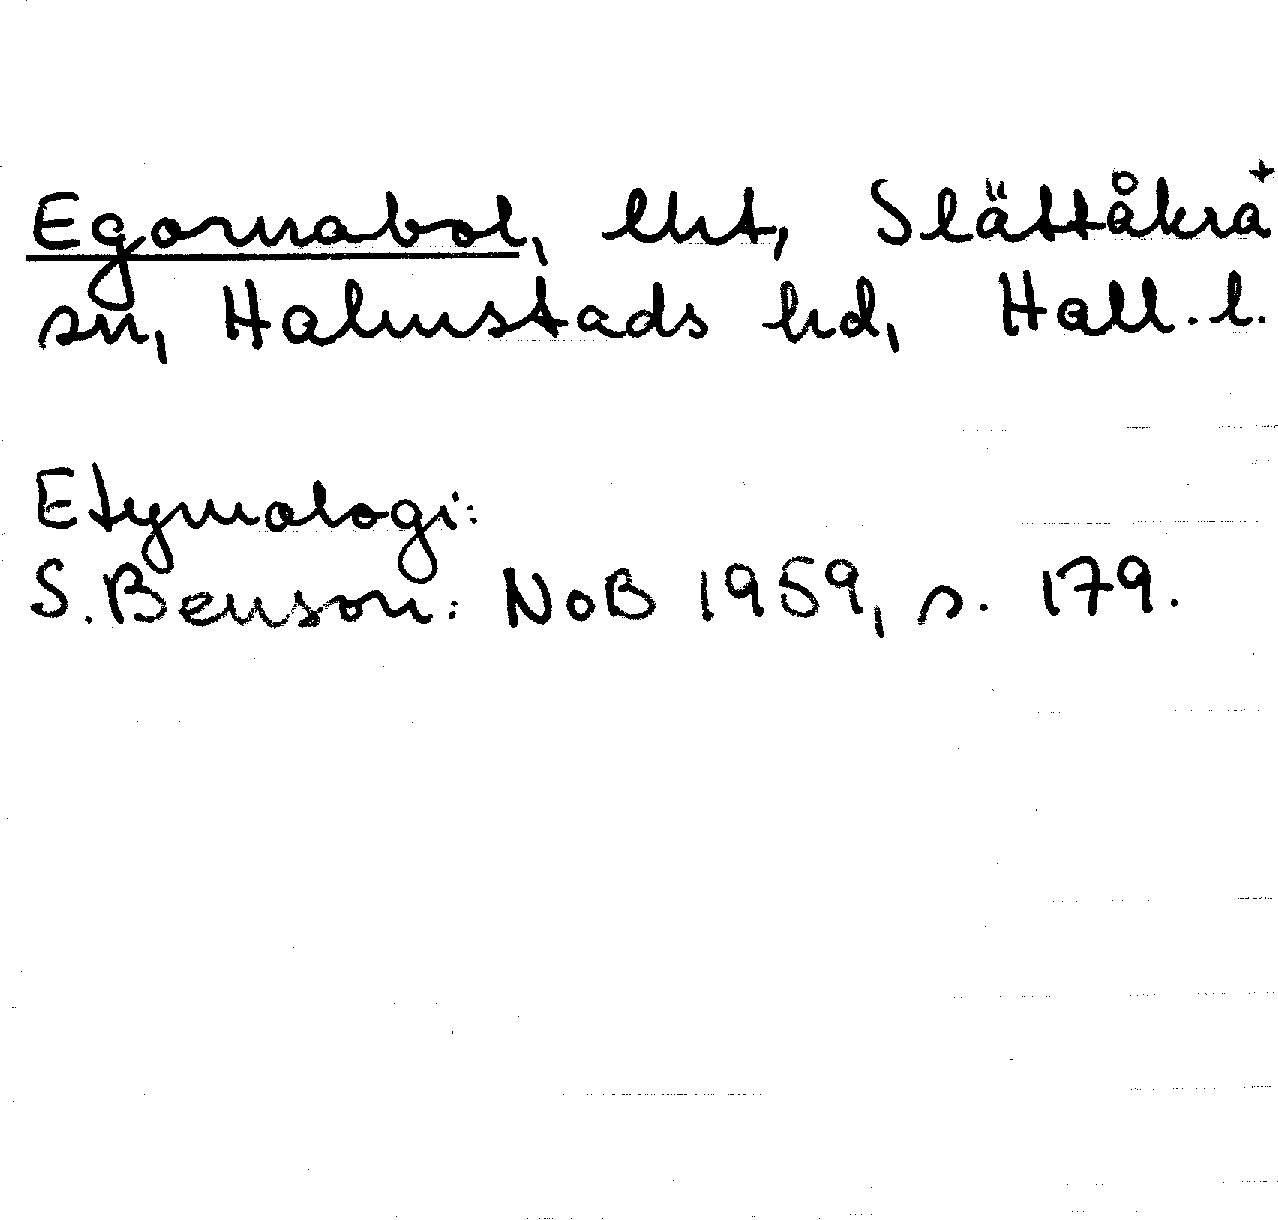 Egornabol, lht, Slättåkra+
sn, Halmstads hd, Hall. l.
Etymologi:
S. Benson: NoB 1959, s. 179.